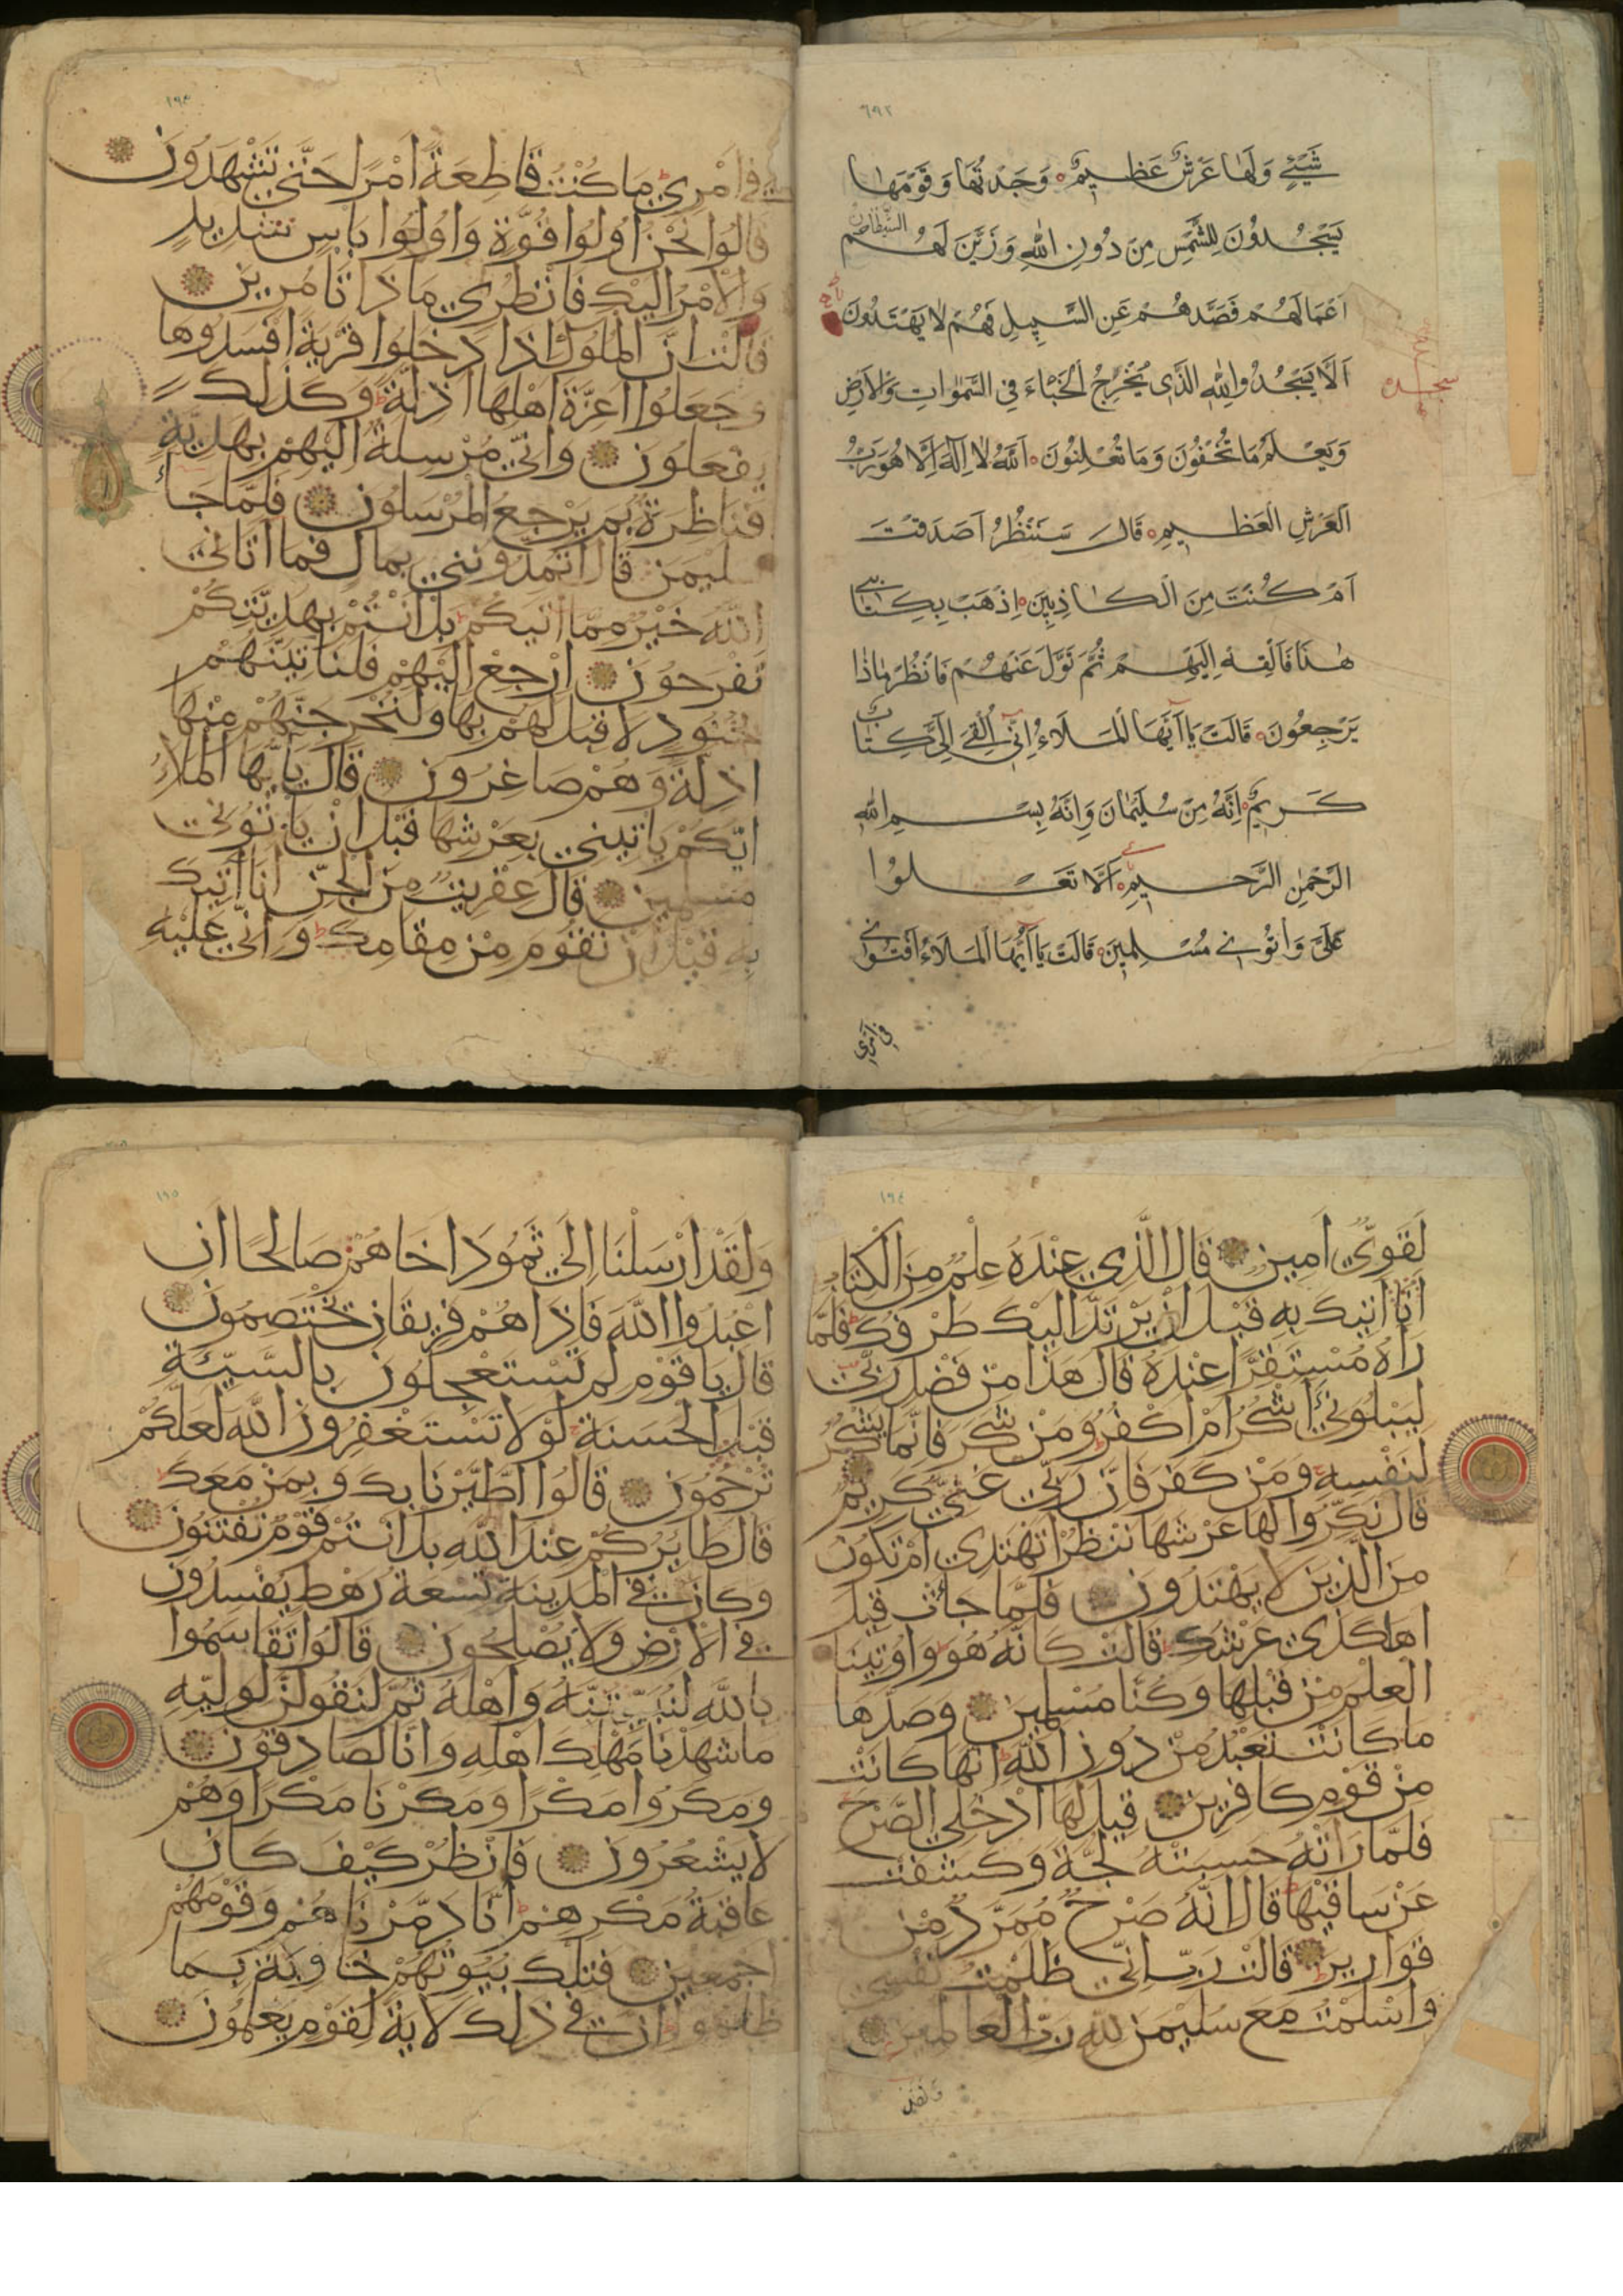 ٦٩٢
شَيْئٍ وَلَهَا عَرْشٌ عَظِيمٌ وَجَدْتُهَا وَقَوْمَهَا
يَسْجُدُونَ لِلشَّمْسِ مِنْ دُونِ اللهِ وَزَيَّنَ لَهُمُ الشَّيْطَانُ
اَعْمَالَهُمْ فَصَدَّهُمْ عَنِ السَّبِيلِ فَهُمْ لَا يَهْتَدُونَ
اَلَّا يَسْجُدُوا لِلّٰهِ الَّذِى يُخْرِجُ الْخَبْاءَ فِي السَّمٰوَاتِ وَالْاَرْضِ
سجده
وَيَعْلَمُ مَا تُخْفُونَ وَمَا تُعْلِنُونَ اَللّٰهُ لَا اِلٰهَ اِلَّا هُوَ رَبُّ
الْعَرْشِ الْعَظِيمِ قَالَ سَنَنْظُرُ اَصَدَقْتَ
اَمْ كُنْتَ مِنَ الْكَاذِبِينَ اِذْهَبْ بِكِتَابِي
هٰذَا فَاَلْقِهْ اِلَيْهِمْ ثُمَّ تَوَلَّ عَنْهُمْ فَانْظُرْ مَاذَا
يَرْجِعُونَ قَالَتْ يَا اَيُّهَا الْمَلَاءُ اِنِّي اُلْقِيَ اِلَيَّ كِتَابٌ
كَرِيمٌ اِنَّهُ مِنْ سُلَيْمَانَ وَاِنَّهُ بِسْمِ اللهِ
الرَّحْمٰنِ الرَّحِيمِ اَلَّا تَعْلُوا
عَلَيَّ وَاتُوْنِي مُسْلِمِينَ قَالَتْ يَا اَيُّهَا الْمَلَاءُ اَفْتُونِي
في امري
١٩٣
في اَمْرِي مَا كُنْتُ قَاطِعَةً اَمْرًا حَتَّى تَشْهَدُونَ
قَالُوا نَحْنُ اُولُوا قُوَّةٍ وَاُولُوا بَاْسٍ شَدِيدٍ
وَالْاَمْرُ اِلَيْكِ فَانْظُرِي مَاذَا تَاْمُرِينَ
قَالَتْ اِنَّ الْمُلُوكَ اِذَا دَخَلُوا قَرْيَةً اَفْسَدُوهَا
وَجَعَلُوا اَعِزَّةَ اَهْلِهَا اَذِلَّةً وَكَذٰلِكَ
يَفْعَلُونَ وَاِنِّي مُرْسِلَةٌ اِلَيْهِمْ بِهَدِيَّةٍ
فَنَاظِرَةٌ بِمَ يَرْجِعُ الْمُرْسَلُونَ فَلَمَّا جَاءَ
سليمن قَالَ اَتُمِدُّونَنِي بِمَالٍ فَمَا اٰتَانِيَ
اللّٰهُ خَيْرٌ مِمَّا اٰتٰيكُمْ بَلْ اَنْتُمْ بِهَدِيَّتِكُمْ
تَفْرَحُونَ اِرْجِعْ اِلَيْهِمْ فَلَنَاْتِيَنَّهُمْ
بجُنُودٍ لَا قِبَلَ لَهُمْ بِهَا وَلَنُخْرِجَنَّهُمْ مِنْهَا
اَذِلَّةً وَهُمْ صَاغِرُونَ قَالَ يَا اَيُّهَا الْمَلَاءُ
اَيُّكُمْ يَاْتِينِي بِعَرْشِهَا قَبْلَ اَنْ يَاْتُونِي
مُسْلِمِينَ قَالَ عِفْرِيتٌ مِنَ الْجِنِّ اَنَا اٰتِيكَ
بِهِ قَبْلَ اَنْ تَقُومَ مِنْ مَقَامِكَ وَاِنِّي عَلَيْهِ
١٩٤
لَقَوِيٌّ اَمِينٌ قَالَ الَّذِي عِنْدَهُ عِلْمٌ مِنَ الْكِتَابِ
اَنَا اٰتِيكَ بِهِ قَبْلَ اَنْ يَرْتَدَّ اِلَيْكَ طَرْفُكَ فَلَمَّا
رَاٰهُ مُسْتَقِرًّا عِنْدَهُ قَالَ هٰذَا مِنْ فَضْلِ رَبِّي
لِيَبْلُوَنِي ءَاَشْكُرُ اَمْ اَكْفُرُ وَمَنْ شَكَرَ فَاِنَّمَا يَشْكُرُ
لِنَفْسِهِ وَمَنْ كَفَرَ فَاِنَّ رَبِّي غَنِيٌّ كَرِيمٌ
قَالَ نَكِّرُوا لَهَا عَرْشَهَا نَنْظُرْ اَتَهْتَدِي اَمْ تَكُونُ
مِنَ الَّذِينَ لَا يَهْتَدُونَ فَلَمَّا جَاءَتْ قِيلَ
اَهٰكَذَى عَرْشُكِ قَالَتْ كَاَنَّهُ هُوَ وَاُوتِينَا
الْعِلْمَ مِنْ قَبْلِهَا وَكُنَّا مُسْلِمِينَ وَصَدَّهَا
مَا كَانَتْ تَعْبُدُ مِنْ دُونِ اللّٰهِ اِنَّهَا كَانَتْ
مِنْ قَوْمٍ كَافِرِينَ قِيلَ لَهَا ادْخُلِي الصَّرْحَ
فَلَمَّا رَاَتْهُ حَسِبَتْهُ لُجَّةً وَكَشَفَتْ
عَنْ سَاقَيْهَا قَالَ اِنَّهُ صَرْحٌ مُمَرَّدٌ مِنْ
قَوَارِيرَ قَالَتْ رَبِّ اِنِّي ظَلَمْتُ نَفْسِي
وَاَسْلَمْتُ مَعَ سُلَيْمٰنَ لِلّٰهِ رَبِّ الْعَالَمِينَ
ولقد
١٩٥
وَلَقَدْ اَرْسَلْنَا اِلَى ثَمُودَ اَخَاهُمْ صَالِحًا اَنِ
اعْبُدُوا اللّٰهَ فَاِذَا هُمْ فَرِيقَانِ يَخْتَصِمُونَ
قَالَ يَا قَوْمِ لِمَ تَسْتَعْجِلُونَ بِالسَّيِّئَةِ
قَبْلَ الْحَسَنَةِ لَوْلَا تَسْتَغْفِرُونَ اللّٰهَ لَعَلَّكُمْ
تُرْحَمُونَ قَالُوا اطَّيَّرْنَا بِكَ وَبِمَنْ مَعَكَ
قَالَ طَايِرُكُمْ عِنْدَ اللّٰهِ بَلْ اَنْتُمْ قَوْمٌ تُفْتَنُونَ
وَكَانَ فِي الْمَدِينَةِ تِسْعَةُ رَهْطٍ يُفْسِدُونَ
فِي الْاَرْضِ وَلَا يُصْلِحُونَ قَالُوا تَقَاسَمُوا
بِاللّٰهِ لَنُبَيِّتَنَّهُ وَاَهْلَهُ ثُمَّ لَنَقُولَنَّ لِوَلِيِّهِ
مَا شَهِدْنَا مَهْلِكَ اَهْلِهِ وَاِنَّا لَصَادِقُونَ
وَمَكَرُوا مَكْرًا وَمَكَرْنَا مَكْرًا وَهُمْ
لَا يَشْعُرُونَ فَانْظُرْ كَيْفَ كَانَ
عَاقِبَةُ مَكْرِهِمْ اَنَّا دَمَّرْنَاهُمْ وَقَوْمَهُمْ
اَجْمَعِينَ فَتِلْكَ بُيُوتُهُمْ خَاوِيَةً بِمَا
ظَلَمُوا اِنَّ فِي ذٰلِكَ لَاٰيَةً لِقَوْمٍ يَعْلَمُونَ